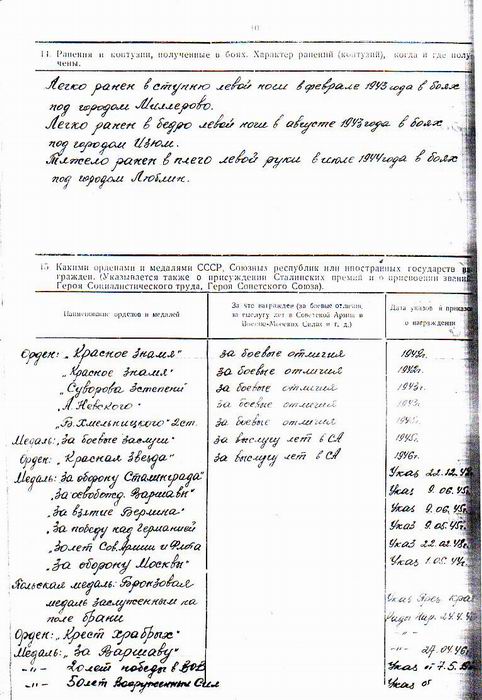 14. Ранения и контузии, полученные в боях. Характер ранений (контузий), когда и где полу-
чены.
Легко ранен в ступню левой ноги в феврале 1943 года в боях
под городом Миллерово.
Легко ранен в бедро левой ноги в августе 1943 года в боях
под городом Изюм.
Тяжело ранен в плечо левой руки в июле 1944 года в боях
под городом Люблин.
15. Какими орденами и медалями СССР, Союзных республик или иностранных государств
гражден. (Указывается также о присуждении Сталинских премий и о присвоении звания
Героя Социалистического труда, Героя Советского Союза).
Наименование орденов и медалей
За что награжден (за боевые отличия,
за выслугу лет в Советской Армии и
Военно-Морских Силах и т. д.)
Дата указов и приказов
о награждении
Орден: „Красное Знамя" за боевые отличия 1942г.
„Красное Знамя" за боевые отличия 1942г.
„Суворова 3 степени" за боевые отличия 1943г.
„А. Невского" за боевые отличия 1943г.
„Б. Хмельницкого" 2 ст. за боевые отличия 1945г.
Медаль: „за боевые заслуги" за выслугу лет в СА 1945г.
Орден: „Красная Звезда" за выслугу лет в СА 1946г.
Медаль: „За оборону Сталинграда" Указ 22.12.
„За освобожд. Варшавы" Указ 9.06.45г.
„За взятие Берлина" Указ 9.06.45г.
„За победу над Германией Указ 9.05.45г.
„30 лет Сов. Армии и Флота Указ 22.02.48г.
„За оборону Москвы" Указ 1.05.44г.
Польская медаль: Бронзовая
медаль заслуженным на Указ През.
поле брани 24.4.
Орден: „Крест Храбрых" -"-
Медаль: „За Варшаву" 27.04.46г.
-"- 20 лет победы в ВОВ Указ от 7.5.
-"- 50 лет Вооруженных Сил Указ от